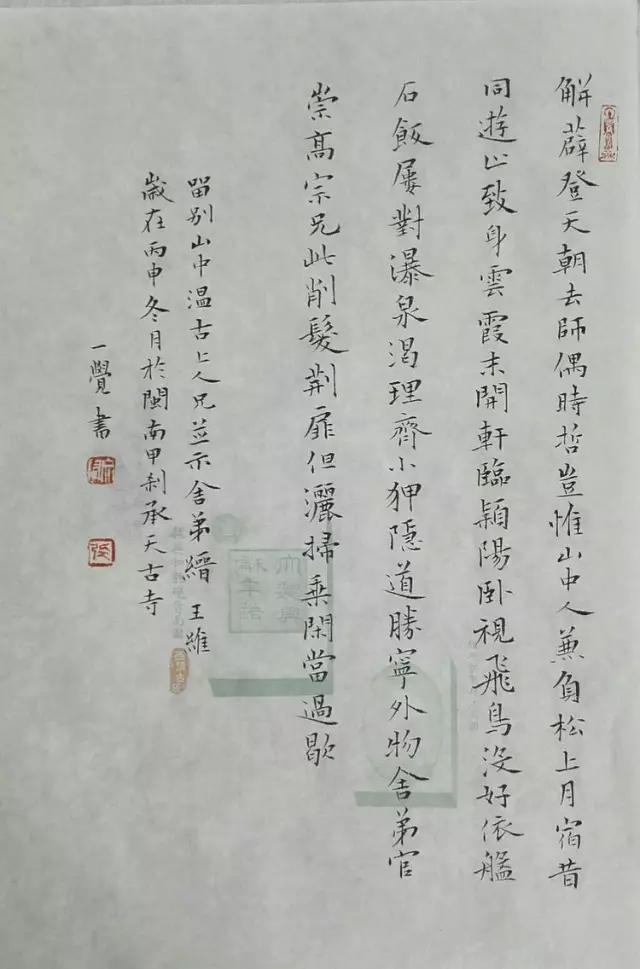 解薜登天朝去師偶時哲豈惟山中人兼負松上月宿昔
同遊止致身雲霞末開軒臨潁陽卧視飛鳥没好依艦
石飯屢對瀑泉渴理齊小狎隱道勝寧外物舍弟官
崇高宗兄此削髮荆扉但灑掃乘閑當過歇
留别山中温古上人兄並示舍弟縉 王維
歲在丙申冬月於閩南甲刹承天古寺
一覺書